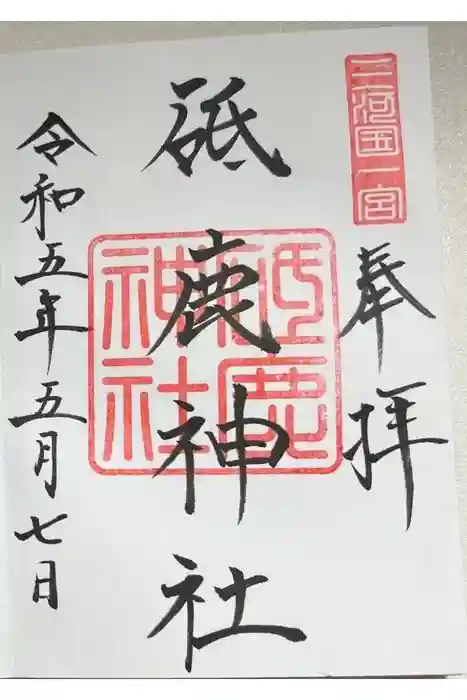 三河国一宮
奉拝
砥鹿神社
砥鹿
神社
令和五年五月七日